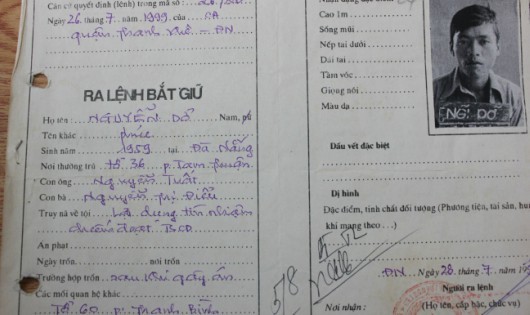 Căn cứ quyết định (lệnh) trong mã số :
Ngày 26 tháng 7 năm 1999 của CA
quận Thanh Khê - ĐN
RA LỆNH BẮT GIỮ
Họ tên : NGUYỄN DƠ Nam,
Tên khác
Sinh năm 1959 tại Đà Nẵng
Nơi thường trú Tổ 36 p. Tam Thuận
Con ông Nguyễn Tuất
Con bà Nguyễn Thị Điểu
Truy nã về tội Lợi dụng tín nhiệm
chiếm đoạt TSCD
Án phạt
Ngày trốn nơi trốn
Trường hợp trốn sau khi gây án
Các mối quan hệ khác
Tổ 60 p. Thanh Bình
Cao 1m
Sống mũi
Nếp tai dưới
Dái tai
Tầm vóc
Giọng nói
Màu da
NG~ DƠ
Dấu vết đặc biệt
Dị hình
Đặc điểm, tính chất đối tượng (Phương tiện, tài sản,
khí mang theo ...)
5/8
ĐN, Ngày 28 tháng 7
Người ra lệnh
Nơi nhận : (Họ tên, cấp bậc, chức vụ)